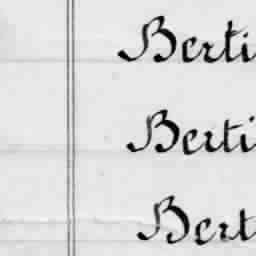 Berti
Berti
Bert